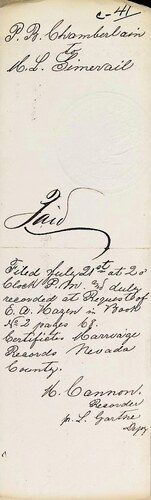 c-41
P. B. Chamberlain
to
M. L.
Paid
Filed July 21st at 2 o
Clock P.M. and duly
recorded at Request of
E. A. Hagen in Book
No 2 pages 67.
Certifictes Marruage
Records Nevada
County.
H. Cannon.
Recorder
p. L. Gartne
Depy